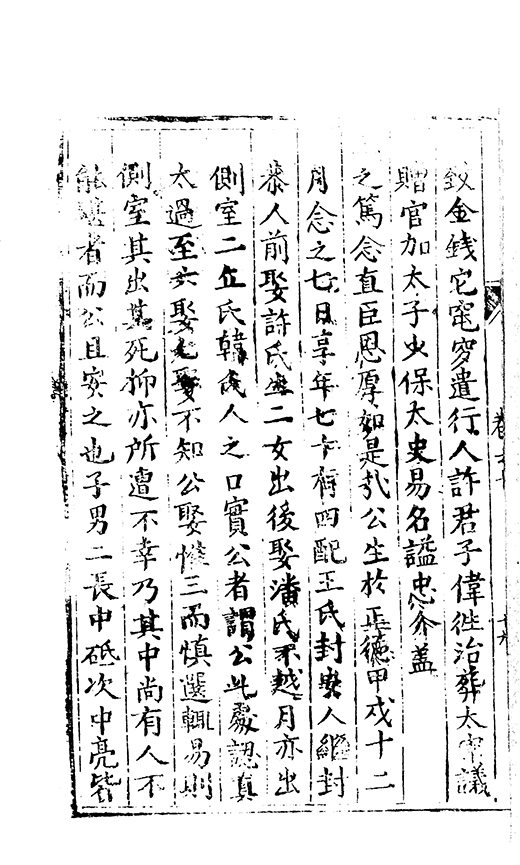 鈫金錢它窀穸遣行人許君子偉徃治葬太宰議
贈官加太子少保太史易名謚忠介蓋
之篤念直臣恩厚如是扎公生於正德甲戌十二
月念之七日享年七十有四配王氏封安人繼封
恭人前娶許氏生二女出後娶潘氏不越月亦出
側室二丘氏韓氏人之口實公者謂公此處認真
太過至六娶七娶不知公娶惟三而慎選輒易則
側室其出其死抑亦所遭不幸乃其中尚有人不
能堪者而公且安之也子男二長中砥次中亮皆